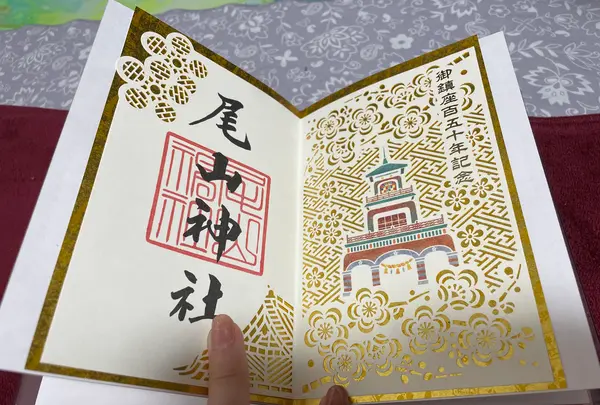 御鎮座百五十年記念
尾山神社